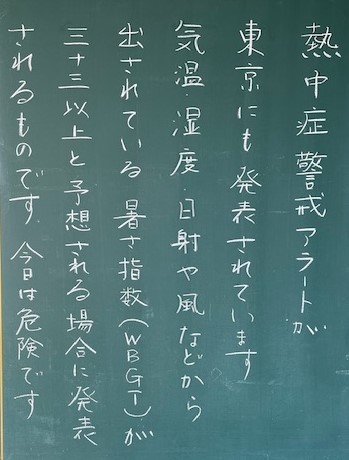 熱中症警戒アラートが
東京にも発表されています
気温・湿度・日射や風などから
出されている暑さ指数(WBGT)が
三十三以上と予想される場合に発表
されるものです 今日は危険です